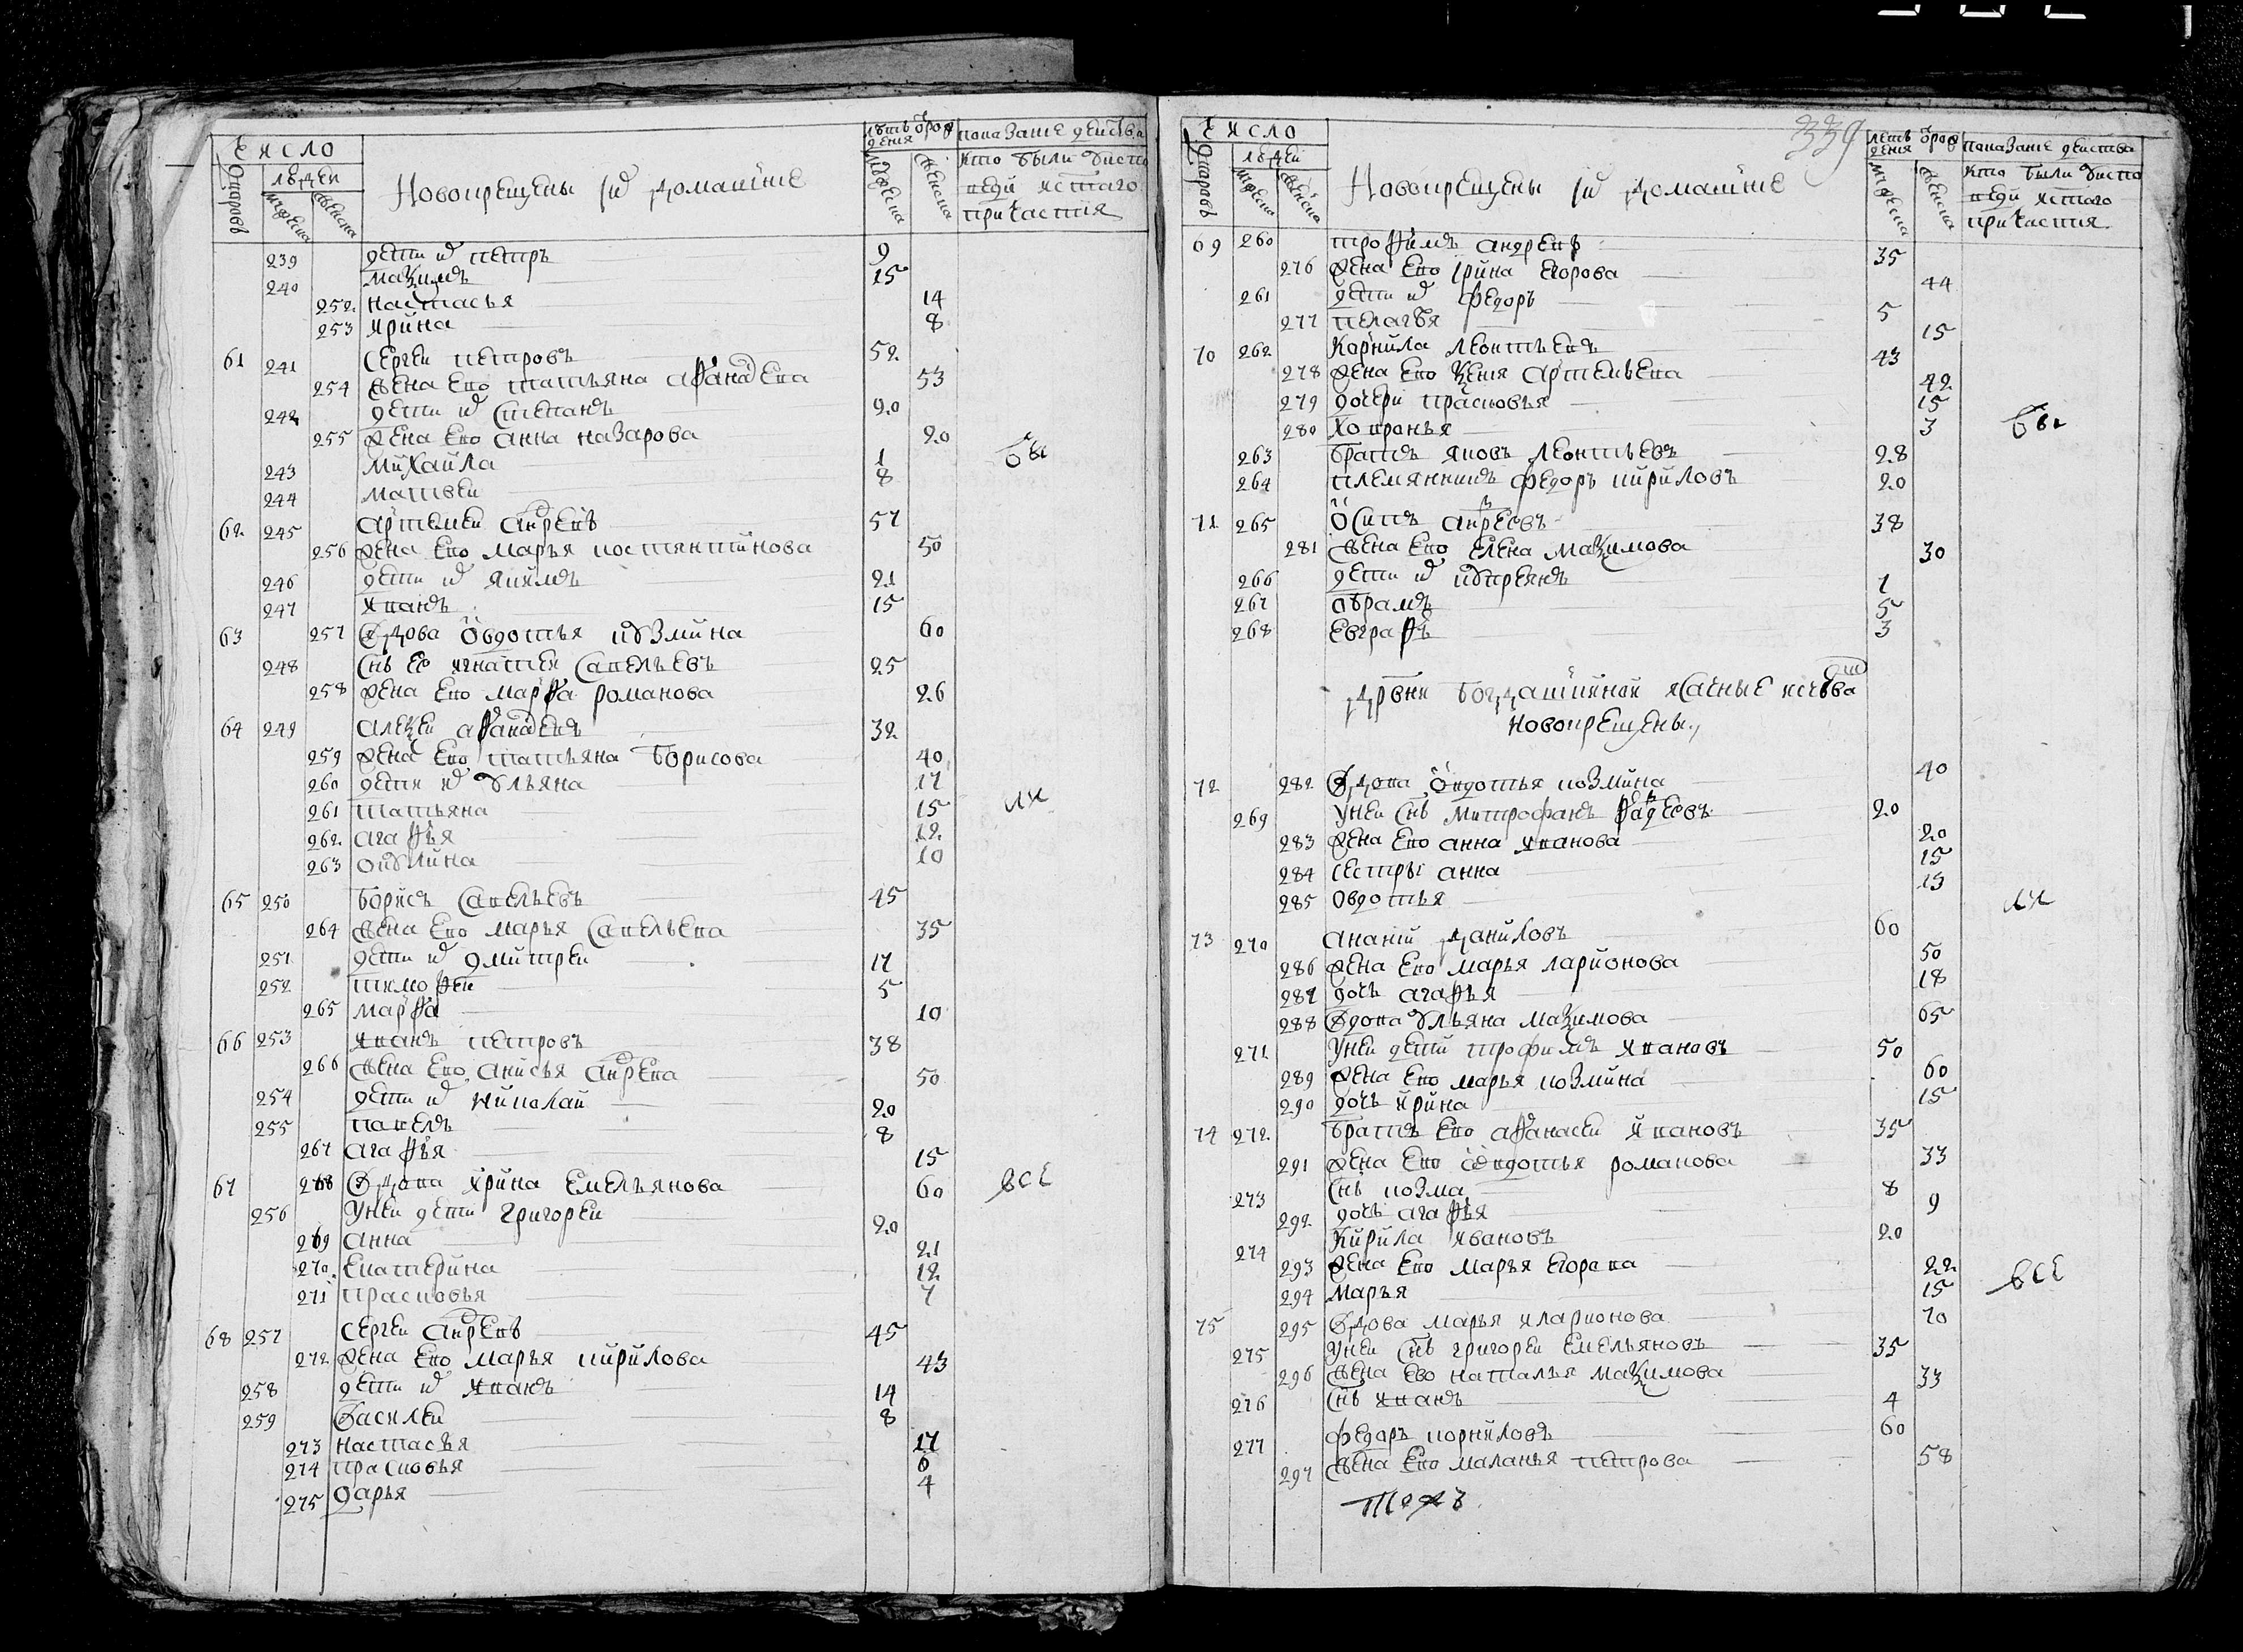 Число
дворовъ
людей
мужеска
женска
Новокрещены и ихъ домашние
лѣтъ от рож
дения
мужеска
женска
показание действа
кто были у испо
веди и святаго
причастия
239 дети их петръ 9
240 маѯимъ 15
252 настасья 14
253 ирина 8
61 241 Сергеи петровъ 52
254 жена ево татьяна афанасева 53
242 дети их степанъ 20
255 жена ево анна назарова 20
243 михаила 1
244 матвеи 8
62 245 артемеи андреевъ 57
256 жена ево марья костянтинова 50
246 дети их якимъ 21
247 иванъ 15
63 257 вдова овдотья кузмина 60
248 снъ ее игнатеи савельевъ 25
258 жена ево марѳа романова 26
64 249 алеѯеи аѳанасевъ 32
259 жена ево татьяна борисова 40
260 дети их ульяна 17
261 татьяна 15
262 агаѳья 12
263 окулина 10
65 250 борисъ савельевъ 45
264 жена ево марья савельева 35
251 дети их дмитреи 17
252 тимоѳеи 5
265 марѳа 10
66 253 иванъ петровъ 38
266 жена ево анисья андрева 50
254 дети их николаи 20
255 павелъ 8
267 агаѳья 15
67 268 вдова ирина емельянова 60
256 у неи дети григореи 20
269 анна 21
270 екатерина 12
271 прасковья 7
68 257 сергеи андревъ 45
272 жена ево марья кирилова 43
258 дети их иванъ 14
259 василеи 8
273 настасья 17
274 прасковья 6
275 дарья 4
бы
ли
все
339
Число
дворовъ
людей
мужеска
женска
Новокрещены и ихъ домашние
летъ от рож
дения
мужеска
женска
показание действа
кто были у испо
веди и святаго
причастия
69 260 троѳимъ андревъ 35
276 жена ево ирина егорова 44
261 дети их федоръ 5
277 пелагѣя 15
70 262 корнила леонтьевъ 43
278 жена ево ѯеня артемьева 42
279 дочери прасковья 15
280 ховронья 3
263 братъ яковъ леонтьевъ 28
264 племянникъ федоръ кириловъ 20
71 265 осипъ андреевъ 38
281 жена ево елена маѯимова 30
266 дети их купреянъ 7
267 абрамъ 5
268 евграѳъ 3
дрвни богдашкиной ясачные исчува
новокрещены
72 282 вдова овдотья козмина 40
269 у неи снъ митрофанъ ѳадеевъ 20
283 жена ево анна иванова 20
284 сестры анна 15
285 овдотья 13
73 270 ананiи даниловъ 60
286 жена ево марья ларионова 50
287 дочь агаѳья 18
288 вдова ульяна маѯимова 65
271 у неи дети трофимъ ивановъ 50
289 жена ево марья козмина 60
290 дочь ирина 15
74 272 братъ ево аѳанасеи ивановъ 35
291 жена ево овдотья романова 33
273 снъ козма 8
292 дочь агаѳья 9
274 Кирила ивановъ 20
293 жена ево марья егорова 22
294 марья 15
75 295 вдова марья иларионова 70
275 у неи снъ григореи емельяновъ 35
296 жена ево наталья маѯимова 33
276 снъ иванъ 4
277 федоръ корниловъ 60
297 жена ево маланья петрова 58
тожъ
бы
ли
все